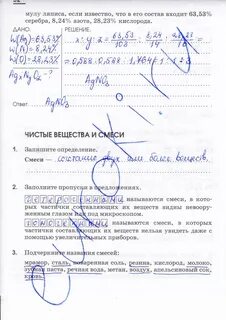 мулу ляписа, если известно, что в его состав входит 63,53%
серебра, 8,24% азота, 28,23% кислорода.
ДАНО:
РЕШЕНИЕ:
W(Ag)=63,53%
W(N)=8,24%
W(O)=28,23%
AgxNyOz - ?
x:y:z = 63,53/108 : 8,24/14 : 28,23/16 =
=0,588:0,588:1,764=1:1:3
AgNO3
AgNO3
ЧИСТЫЕ ВЕЩЕСТВА И СМЕСИ
1. Запишите определение.
Смеси — сочетание двух или более веществ.
2. Заполните пропуски в предложениях.
Гетерогенными называются смеси, в ко-
торых частички составляющих их веществ видны невоору-
женным глазом или под микроскопом.
Гомогенными называются смеси, в которых
частички составляющих их веществ нельзя увидеть даже с
помощью увеличительных приборов.
3. Подчеркните названия смесей:
мрамор, сталь, поваренная соль, резина, кислород, молоко,
зубная паста, речная вода, метан, воздух, апельсиновый сок,
кровь.